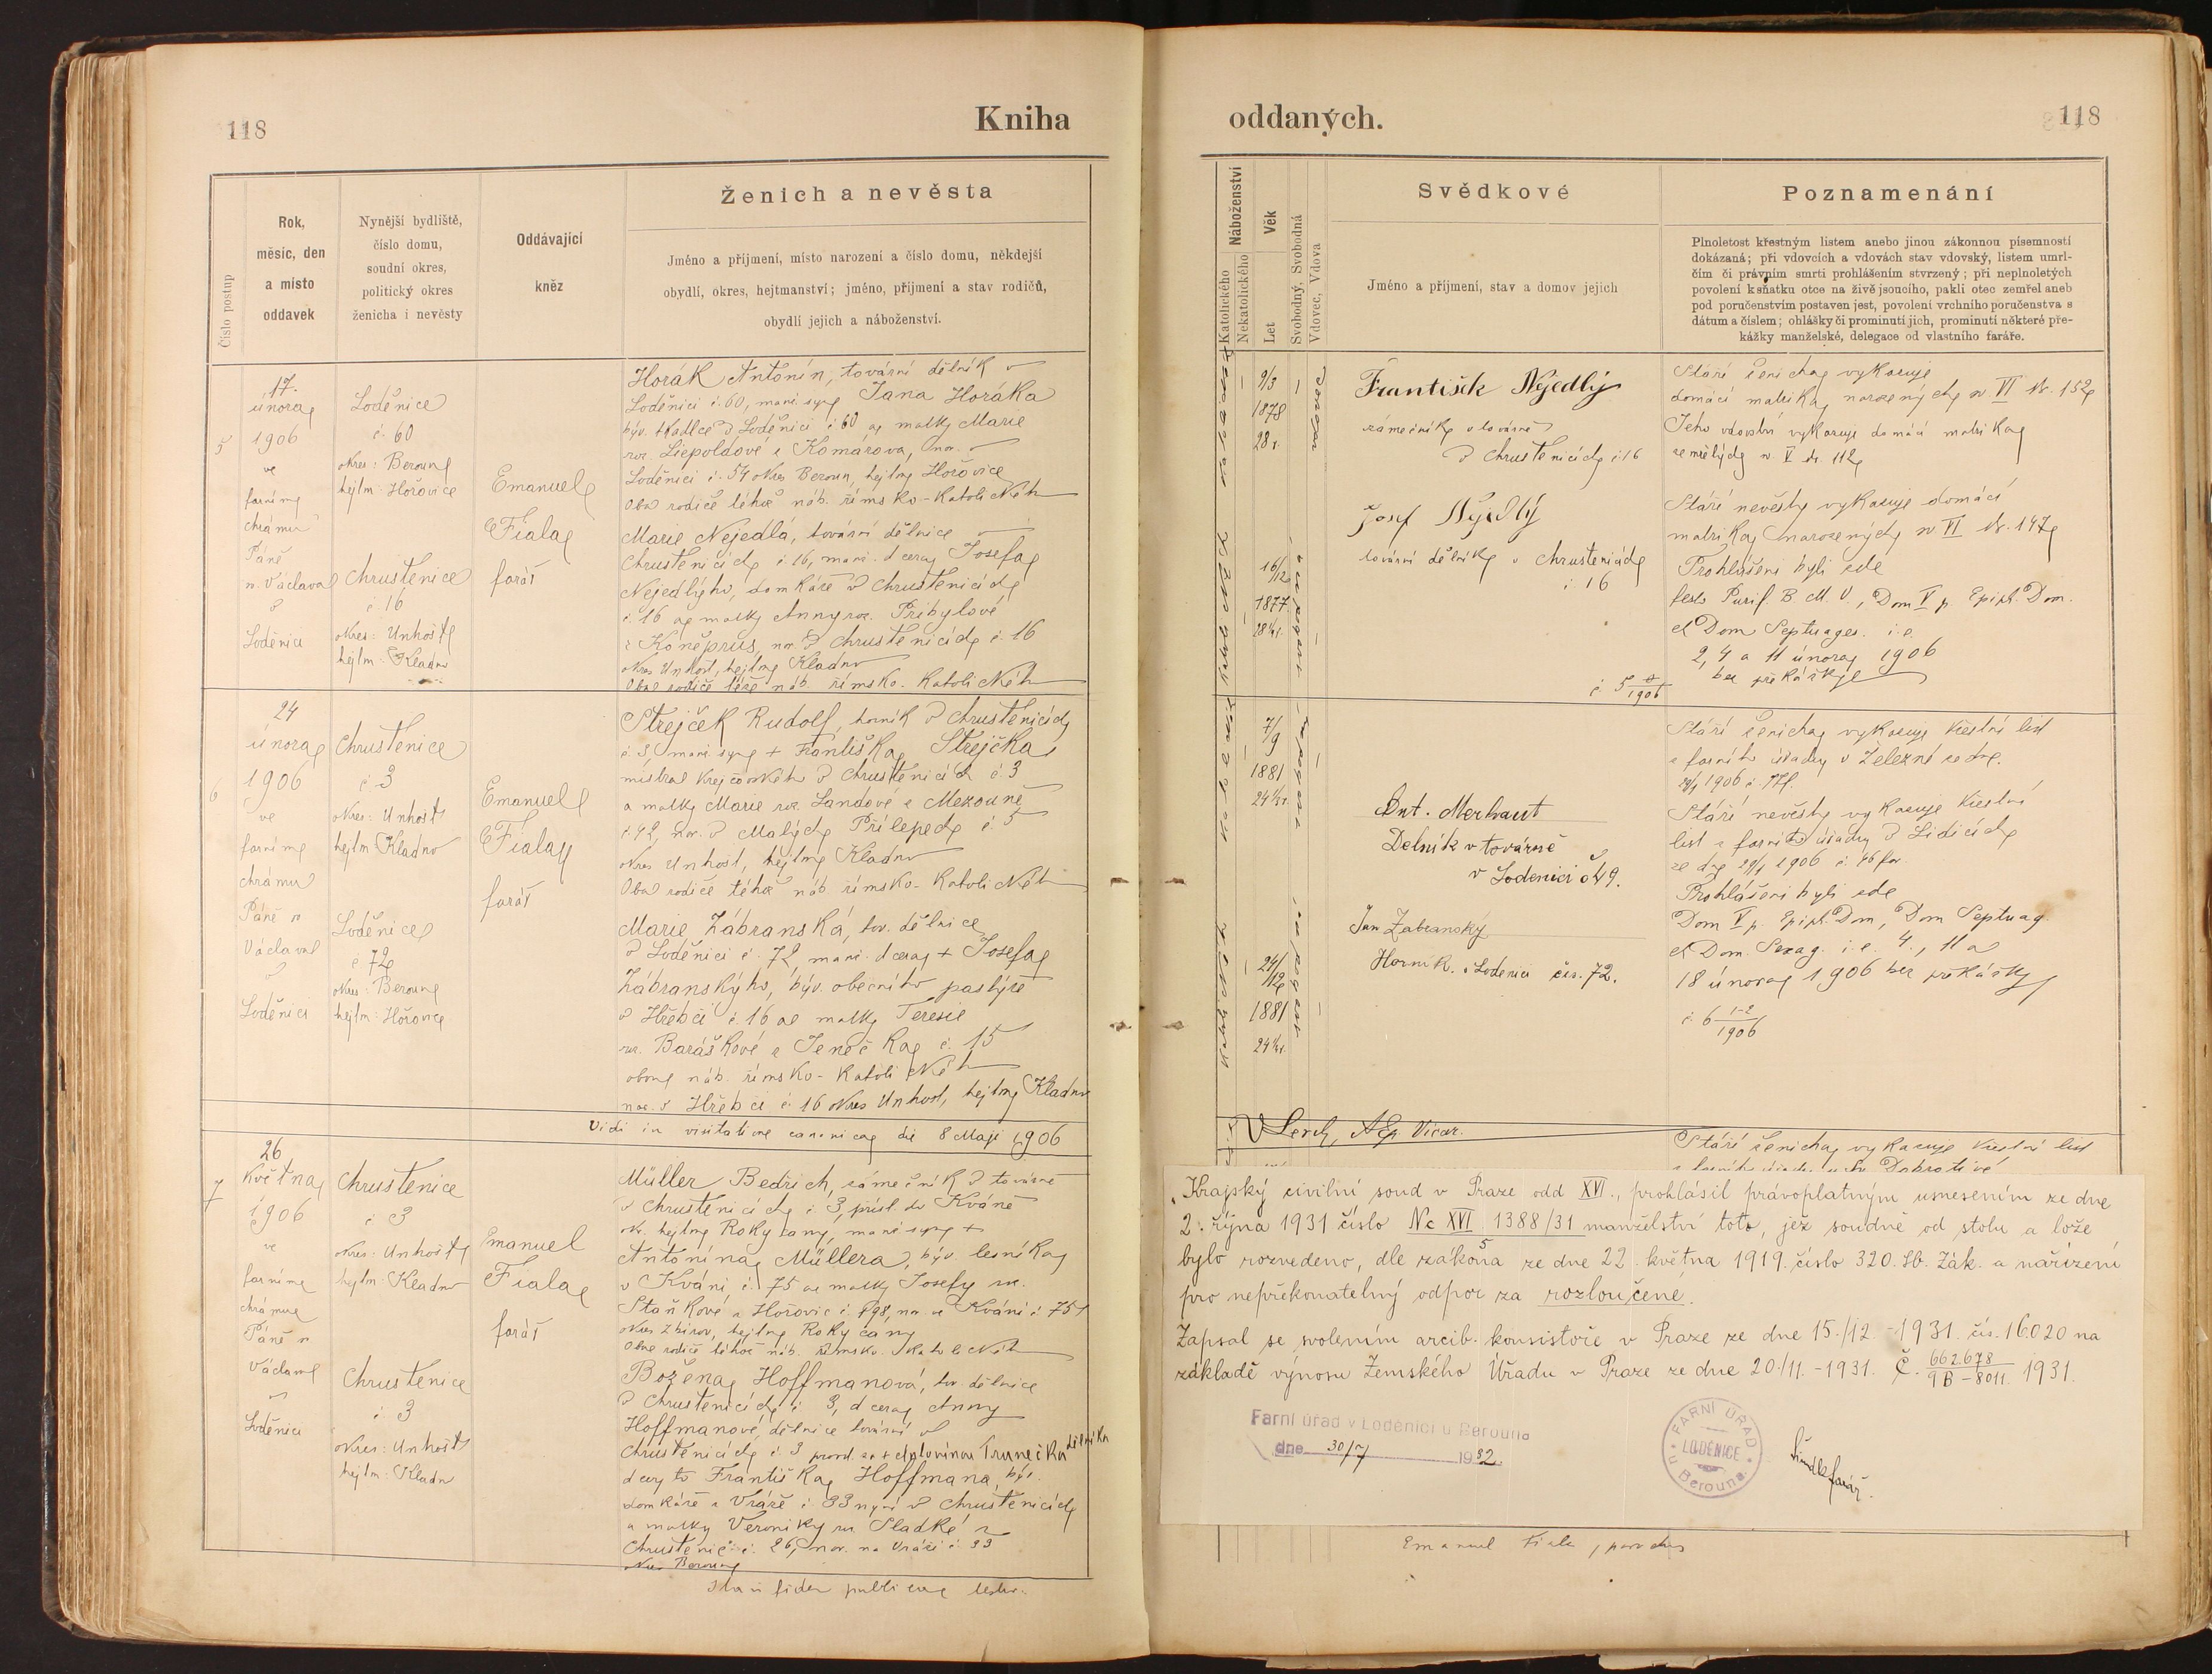 118
Kniha
Číslo postup
Rok,
měsíc, den
a místo
oddavek
Nynější bydliště,
číslo domu,
soudní okres,
politický okres
ženicha i nevěsty
Oddávající
kněz
Ženich a nevěsta
Jméno a příjmení, místo narození a číslo domu, někdejší
obydlí, okres, hejtmanství; jméno, příjmení a stav rodičů,
obydlí jejich a náboženství.
5
17.
února
1906
ve
farním
chrámu
Páně
sv. Václava
v
Loděnici
Loděnice
č. 60
okres: Beroun
hejtm: Hořovice
Chrustenice
č. 16
okres: Unhošť
hejtm: Kladno
Emanuel
Fiala
farář
Horák Antonín, tovární dělník v
Loděnici č. 60, manž. syn Jana Horáka
býv. tkadlce v Loděnici č 60 a matky Marie
roz. Liepoldové z Komárova, nar. v
Loděnici č. 54 okres Beroun, hejtm Hořovice
Oba rodiče téhož náb. římsko-katolického
Marie Nejedlá, tovární dělnice v
Chrustenicích č. 16, manž. dcera Josefa
Nejedlýho, domkáře v Chrustenicích
č. 16 a matky Anny roz. Přibylové
z Koněprus, nar. v Chrustenicích č. 16
okres Unhošť, hejtm Kladno
Oba rodiče téže náb. římsko-katolického
6
24
února
1906
ve
farním
chrámu
Páně sv
Václava
v
Loděnici
Chrustenice
č 3
okres: Unhošť
hejtm Kladno
Loděnice
č 72
okres: Beroun
hejtm: Hořovice
Emanuel
Fiala
farář
Strejček Rudolf, horník v Chrustenicích
č. 3, manž. syn + Františka Strejčka
mistra krejčovského v Chrustenicích č. 3
a matky Marie roz. Landové z Mezouně
č. 42, nar. v Malých Přílepech č 5
okres Unhošť, hejtm Kladno
Oba rodiče téhož náb. římsko-katolického
Marie Zábranská, tov. dělnice
v Loděnici č. 72, manž. dcera + Josefa
Zábranskýho, býv. obecního pastýře
v Hřebči č. 16 a matky Teresie
roz. Baráškové z Jenečka č. 15
obou náb. římsko-katolického
nar. v Hřebči č. 16 okres Unhošť, hejtm Kladno
Vidi in visitatione canonica die 8 Maji 1906
7
26
května
1906
ve
farním
chrámu
Páně sv
Václava
v
Loděnici
Chrustenice
č 3
okres: Unhošť
hejtm: Kladno
Chrustenice
č 3
okres: Unhošť
hejtm: Kladno
Emanuel
Fiala
farář
Müller Bedřich, zámečník v továrně
v Chrustenicích č. 3, přísl. do Kváně
okr. hejtm Rokycany, manž syn +
Antonína Müllera, býv. lesníka
v Kváni č. 75 a matky Josefy roz.
Staňkové z Hořovic č. 198, nar. ve Kváni č 75
okres Zbirov, hejtm Rokycany
Oba rodiče téhož náb. římsko-katolického
Božena Hoffmanová, tov. dělnice
v Chrustenicích č 3, dcera Anny
Hoffmanové, dělnice tovární v
Chrustenicích č. 3
dcery to Františka Hoffmana, býv.
domkáře z Vráže č. 33 nyní v Chrustenicích
a matky Veroniky roz. Sladké z
Chrustenic č. 26, nar. na Vráži č 33
okres Beroun
118
oddaných.
Náboženství
Katolického
Nekatolického
Věk
Let
Svobodný, Svobodná
Vdovec, Vdova
Svědkové
Jméno a příjmení, stav a domov jejich
Poznamenání
Plnoletost křestným listem anebo jinou zákonnou písemností
dokázaná; při vdovcích a vdovách stav vdovský, listem umrl-
čím či právním smrti prohlášením stvrzený; při neplnoletých
povolení k sňatku otce na živě jsoucího, pakli otec zemřel aneb
pod poručenstvím postaven jest, povolení vrchního poručenstva s
dátum a číslem; ohlášky či prominutí jich, prominutí některé pře-
kážky manželské, delegace od vlastního faráře.
9/3
1878
28 r.
vdovec
16/12
1877
28 ¼ r.
František Nejedlý
zámečník v továrně
v Chrustenicích č. 16
Josef Nejedlý
tovární dělník v Chrustenicích
č 16
Stáří ženicha vykazuje
domácí matrika narozených sv. VI str. 152
Jeho vdovství vykazuje domácí matrika
zemřelých sv. V str. 112
Stáří nevěsty vykazuje domácí
matrika narozených sv. VI str. 147
Prohlášeni byli zde
festo Purif. B. M. V., Dom V p. Epiph. Dom.
et Dom Septuages. i. e.
2, 4 a 11 února 1906
bez překážky
7/9
1881
24 ½ r.
24/12
1881
24 ¼ r.
Ant. Merhaut
Delník v továrně
v Lodenici č 49.
Jan Zabranský
Horník. v Lodenici čis. 72.
Stáří ženicha vykazuje křestní list
z farního úřadu v Železné ze dne
1906 č. 174.
Stáří nevěsty vykazuje křestní
list z farního úřadu v Lidicích
ze dne 29/1 1906 č. 46
Prohlášeni byli zde
Dom V p. Epiph. Dom, Dom Septuag.
et Dom. Sexag. i. e. 4., 11 a
18 února 1906 bez překážky
č. 6 1-2/1906
Vicar.
Stáří ženicha vykazuje křestní list
Krajský civilní soud v Praze odd XVI., prohlásil právoplatným usnesením ze dne
2. října 1931 číslo Nc XVI 1388/31 manželství toto, jež soudně od stolu a lože
bylo rozvedeno, dle zákona ze dne 22. května 1919. číslo 320. Sb. Zák. a nařízení
pro nepřekonatelný odpor za rozloučené.
Zapsal se svolením arcib. konsistoře v Praze ze dne 15./12.-1931. čís. 16.020 na
základě výnosu Zemského Úřadu v Praze ze dne 20./11.-1931. Č. 662.678/9B-8011. 1931.
Farní úřad v Loděnici u Berouna
dne 30/7 1932.
FARNÍ ÚŘAD
LODĚNICE
u Berouna
farář.
Emanuel Fiala, parochus